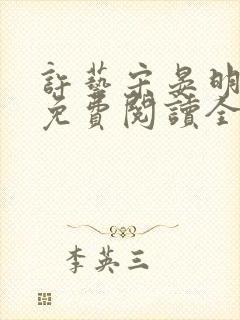 許藝宋晏明
免費閱讀全
李英三